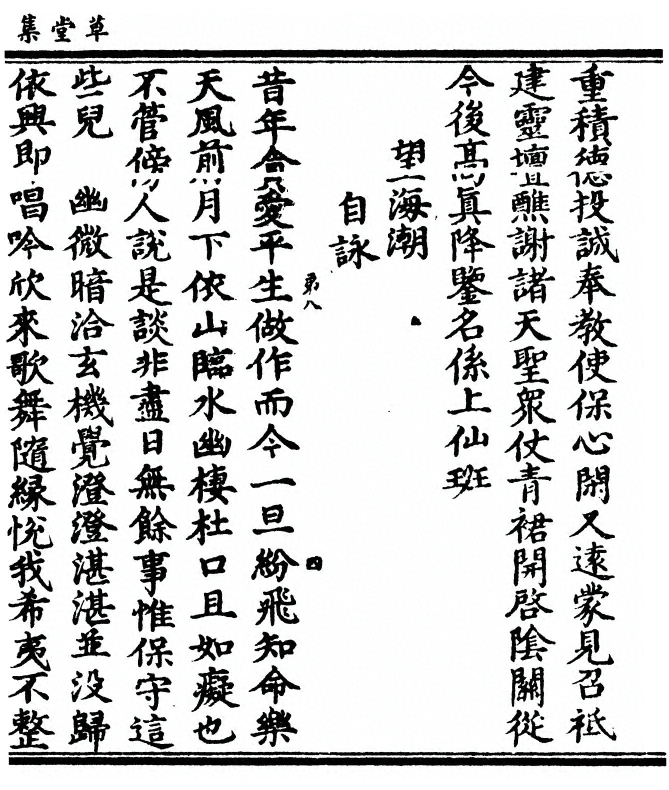 草堂集
重積德投誠奉教使保心閑又遠蒙見召祗
建靈壇醮謝諸天聖衆仗青裙開啓陰關從
今後髙真降鑒名係上仙班
望海潮
自詠
昔年貪愛平生做作而今一旦紛飛知命樂
弟八
四
天風前月下依山臨水幽棲杜口且如癡也
不管傍人說是談非盡日無餘事惟保守這
些兒　幽微暗洽玄機覺澄澄湛湛並没歸
依興即唱吟欣來歌舞隨緣悅我希夷不整